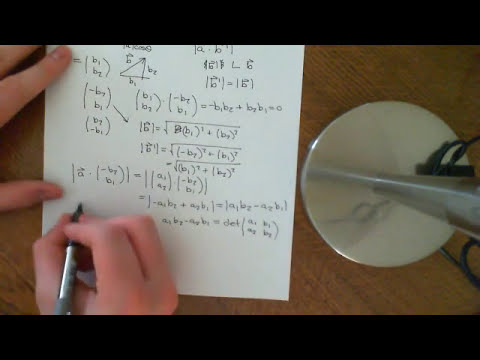 |a · b'|
= (b₁ b₂) b⃗ b₂ b₁ b⃗' ⊥ b⃗
|b⃗'| = |b⃗|
(-b₂ b₁) (b₁ b₂) · (-b₂ b₁) = -b₁b₂ + b₂b₁ = 0
(b₂ -b₁) |b⃗| = √(b₁)² + (b₂)²
|b⃗'| = √(-b₂)² + (b₁)²
= √(b₁)² + (b₂)²
|a⃗ · (-b₂ b₁)| = |(a₁ a₂) · (-b₂ b₁)|
= |-a₁b₂ + a₂b₁| = |a₁b₂ - a₂b₁|
a₁b₂ - a₂b₁ = det(a₁ b₁ a₂ b₂)